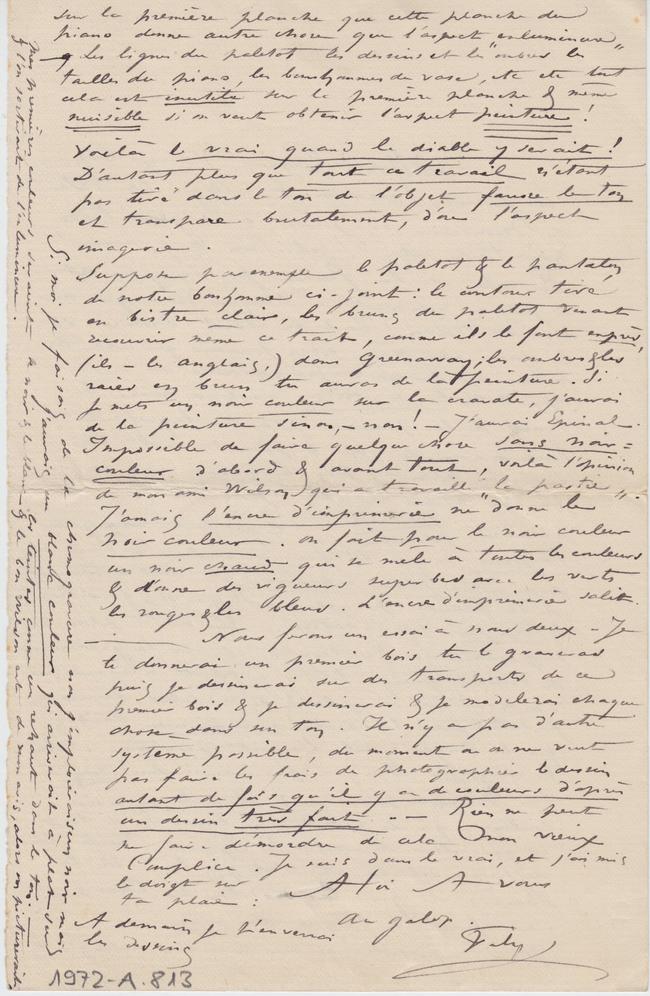 sur la première planche que cette planche du
piano donne autre chose que l'aspect enluminure,
les lignes du paletot les dessins et les "ombres les
tailles du piano, les bonshommes du vase, etc etc tout
cela est inutile sur la première planche & même
nuisible si on veut obtenir l'aspect peinture !
Voilà le vrai quand le diable y serait !
D'autant plus que tout ce travail n'étant
pas tiré dans le ton de l'objet fausse le ton
et transpare brutalement, d'où l'aspect
imagerie.
Suppose par exemple le paletot & le pantalon
de notre bonhomme ci-joint : le contour tiré
en bistre clair, les bruns du paletot venant
recouvrir même ce trait, comme ils le font exprès
(ils - les anglais,) dans Greenaway; les ombres & les
raies en brun tu auras de la peinture. Si
je mets un noir couleur sur la cravate, j'aurai
de la peinture sinon, - non ! - J'aurai Epinal -
Impossible de faire quelque chose sans noir =
couleur d'abord & avant tout, voilà l'opinion
de mon ami Wilson qui a travaillé "la partie".
Jamais l'encre d'imprimerie ne "donne le
noir couleur. on fait pour le noir couleur
un noir chaud qui se mêle à toutes les couleurs
& donne des vigueurs superbes avec les verts
les rouges & les bleus. L'encre d'imprimerie salit.
Nous ferons un essai à nous deux - Je
te donnerai un premier bois tu le graveras
puis je dessinerai sur des transports de ce
premier bois & je dessinerai & je modelerai chaque
chose dans son ton. Il n'y a pas d'autre
système possible, du moment où on ne veut
pas faire les frais de photographier le dessin
autant de fois qu'il y a de couleurs d'après
un dessin très fait. - Rien ne peut
me faire démordre de cela mon vieux
Complice. Je suis dans le vrai, et j'ai mis
le doigt sur
ta plaie :
A toi A vous
au galop.
A demain je t'enverrai
les dessins
Fély
Si moi je faisais de la chromogravure non j'emploierais un noir mais
j'aurais un blanc couleur qui arriverait à plat sur
les teintes comme un rehaut dans le ton. -
Mes premières couleurs seraient le noir & le blanc & le bon Wilson est de mon avis, alors on picturerait
& l'on sortirait de l'enluminure.
1972-A.813